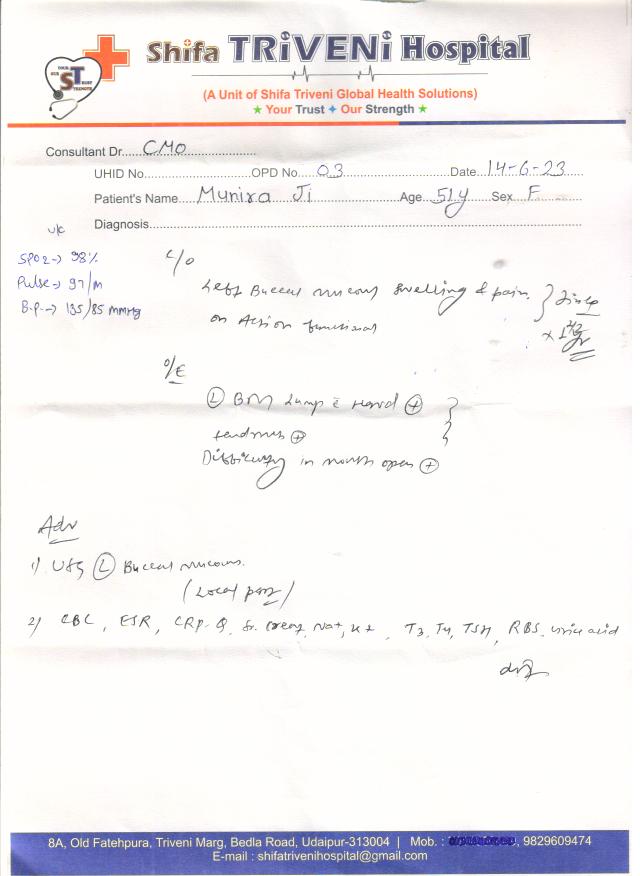 YOUR
OUR TRUST
ST
STRENGTH
Shifa TRiVENi Hospital
(A Unit of Shifa Triveni Global Health Solutions)
Your Trust Our Strength
Consultant Dr. CMO
UHID No. OPD No. 03 Date 14-6-23
Patient's Name Munira Ji Age 51y Sex F
Diagnosis
SPO2→ 98%
Pulse→ 97/m
B.P.→ 135/85 mmHg
c/o
Left Buccal mucous swelling & pain.
on Action functional
O/E
(L) BM Lump c (+)
(+)
in mouth open (+)
Adv
1) USG (L) Buccal mucous.
(Local part)
2) CBC, ESR, CRP-Q, Sr. creat, Na+, K+, T3, T4, TSH, RBS, uric acid
8A, Old Fatehpura, Triveni Marg, Bedla Road, Udaipur-313004 | Mob. : , 9829609474
E-mail : shifatrivenihospital@gmail.com